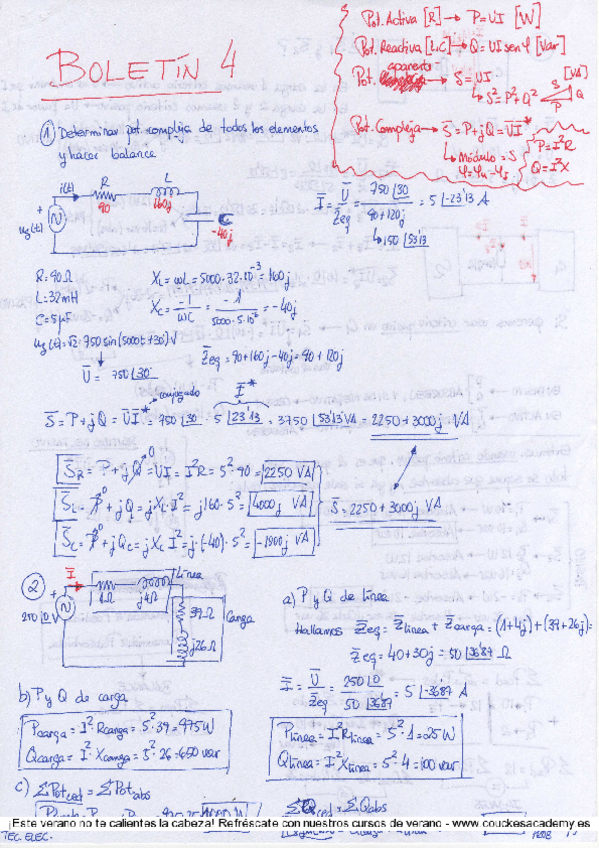 BOLETÍN 4
Pot. Activa [R] → P=UI [W]
Pot. Reactiva [L,C] → Q=UI senφ [Var]
aparente
Pot. → S=UI [VA]
↳ S²=P²+Q²
S
Q
P
Pot. Compleja → S̅=P+jQ=U̅I̅*
↳ Módulo=S
φ=φu-φI
P=I²R
Q=I²X
① Determinar pot. compleja de todos los elementos
y hacer balance
i(t) R L
90 160j
ug(t) C -40j
I̅ = U̅/Z̅eq = 750|30/90+120j = 5|-23'13 A
↳ 150|53'13
R=90Ω
L=32mH
C=5μF
XL=ωL=5000·32·10⁻³=160j
XC=-1/ωC=-1/5000·5·10⁻⁶=-40j
ug(t)=√2·750 sin(5000t+30) V
U̅ = 750|30
Z̅eq=90+160j-40j=90+120j
conjugado
I̅*
S̅=P+jQ=U̅I̅*=750|30·5|23'13=3750|53'13 VA=2250+3000j VA
S̅R=P+jQ⁰=UI=I²R=5²·90=2250 VA
S̅L=P⁰+jQL=jXL·I²=j160·5²=4000j VA
S̅C=P⁰+jQC=jXC·I²=j·(-40)·5²=-1000j VA
S̅=2250+3000j VA
②
I̅
Línea
1Ω j4Ω
250|0 V
39Ω
j26Ω
Carga
a) P y Q de línea
Hallamos Z̅eq=Z̅línea+Z̅carga=(1+4j)+(39+26j)=
Z̅eq=40+30j=50|36'87 Ω
I̅=U̅/Z̅eq=250|0/50|36'87=5|-36'87 A
b) P y Q de carga
Pcarga=I²·Rcarga=5²·39=975W
Qcarga=I²·Xcarga=5²·26=650 var
Plínea=I²Rlínea=5²·1=25W
Qlínea=I²Xlínea=5²·4=100 var
c) ΣPotced=ΣPotabs
ΣQced=ΣQabs
¡Este verano no te calientes la cabeza! Refréscate con nuestros cursos de verano - www.couckesacademy.es
TEC. ELEC.-